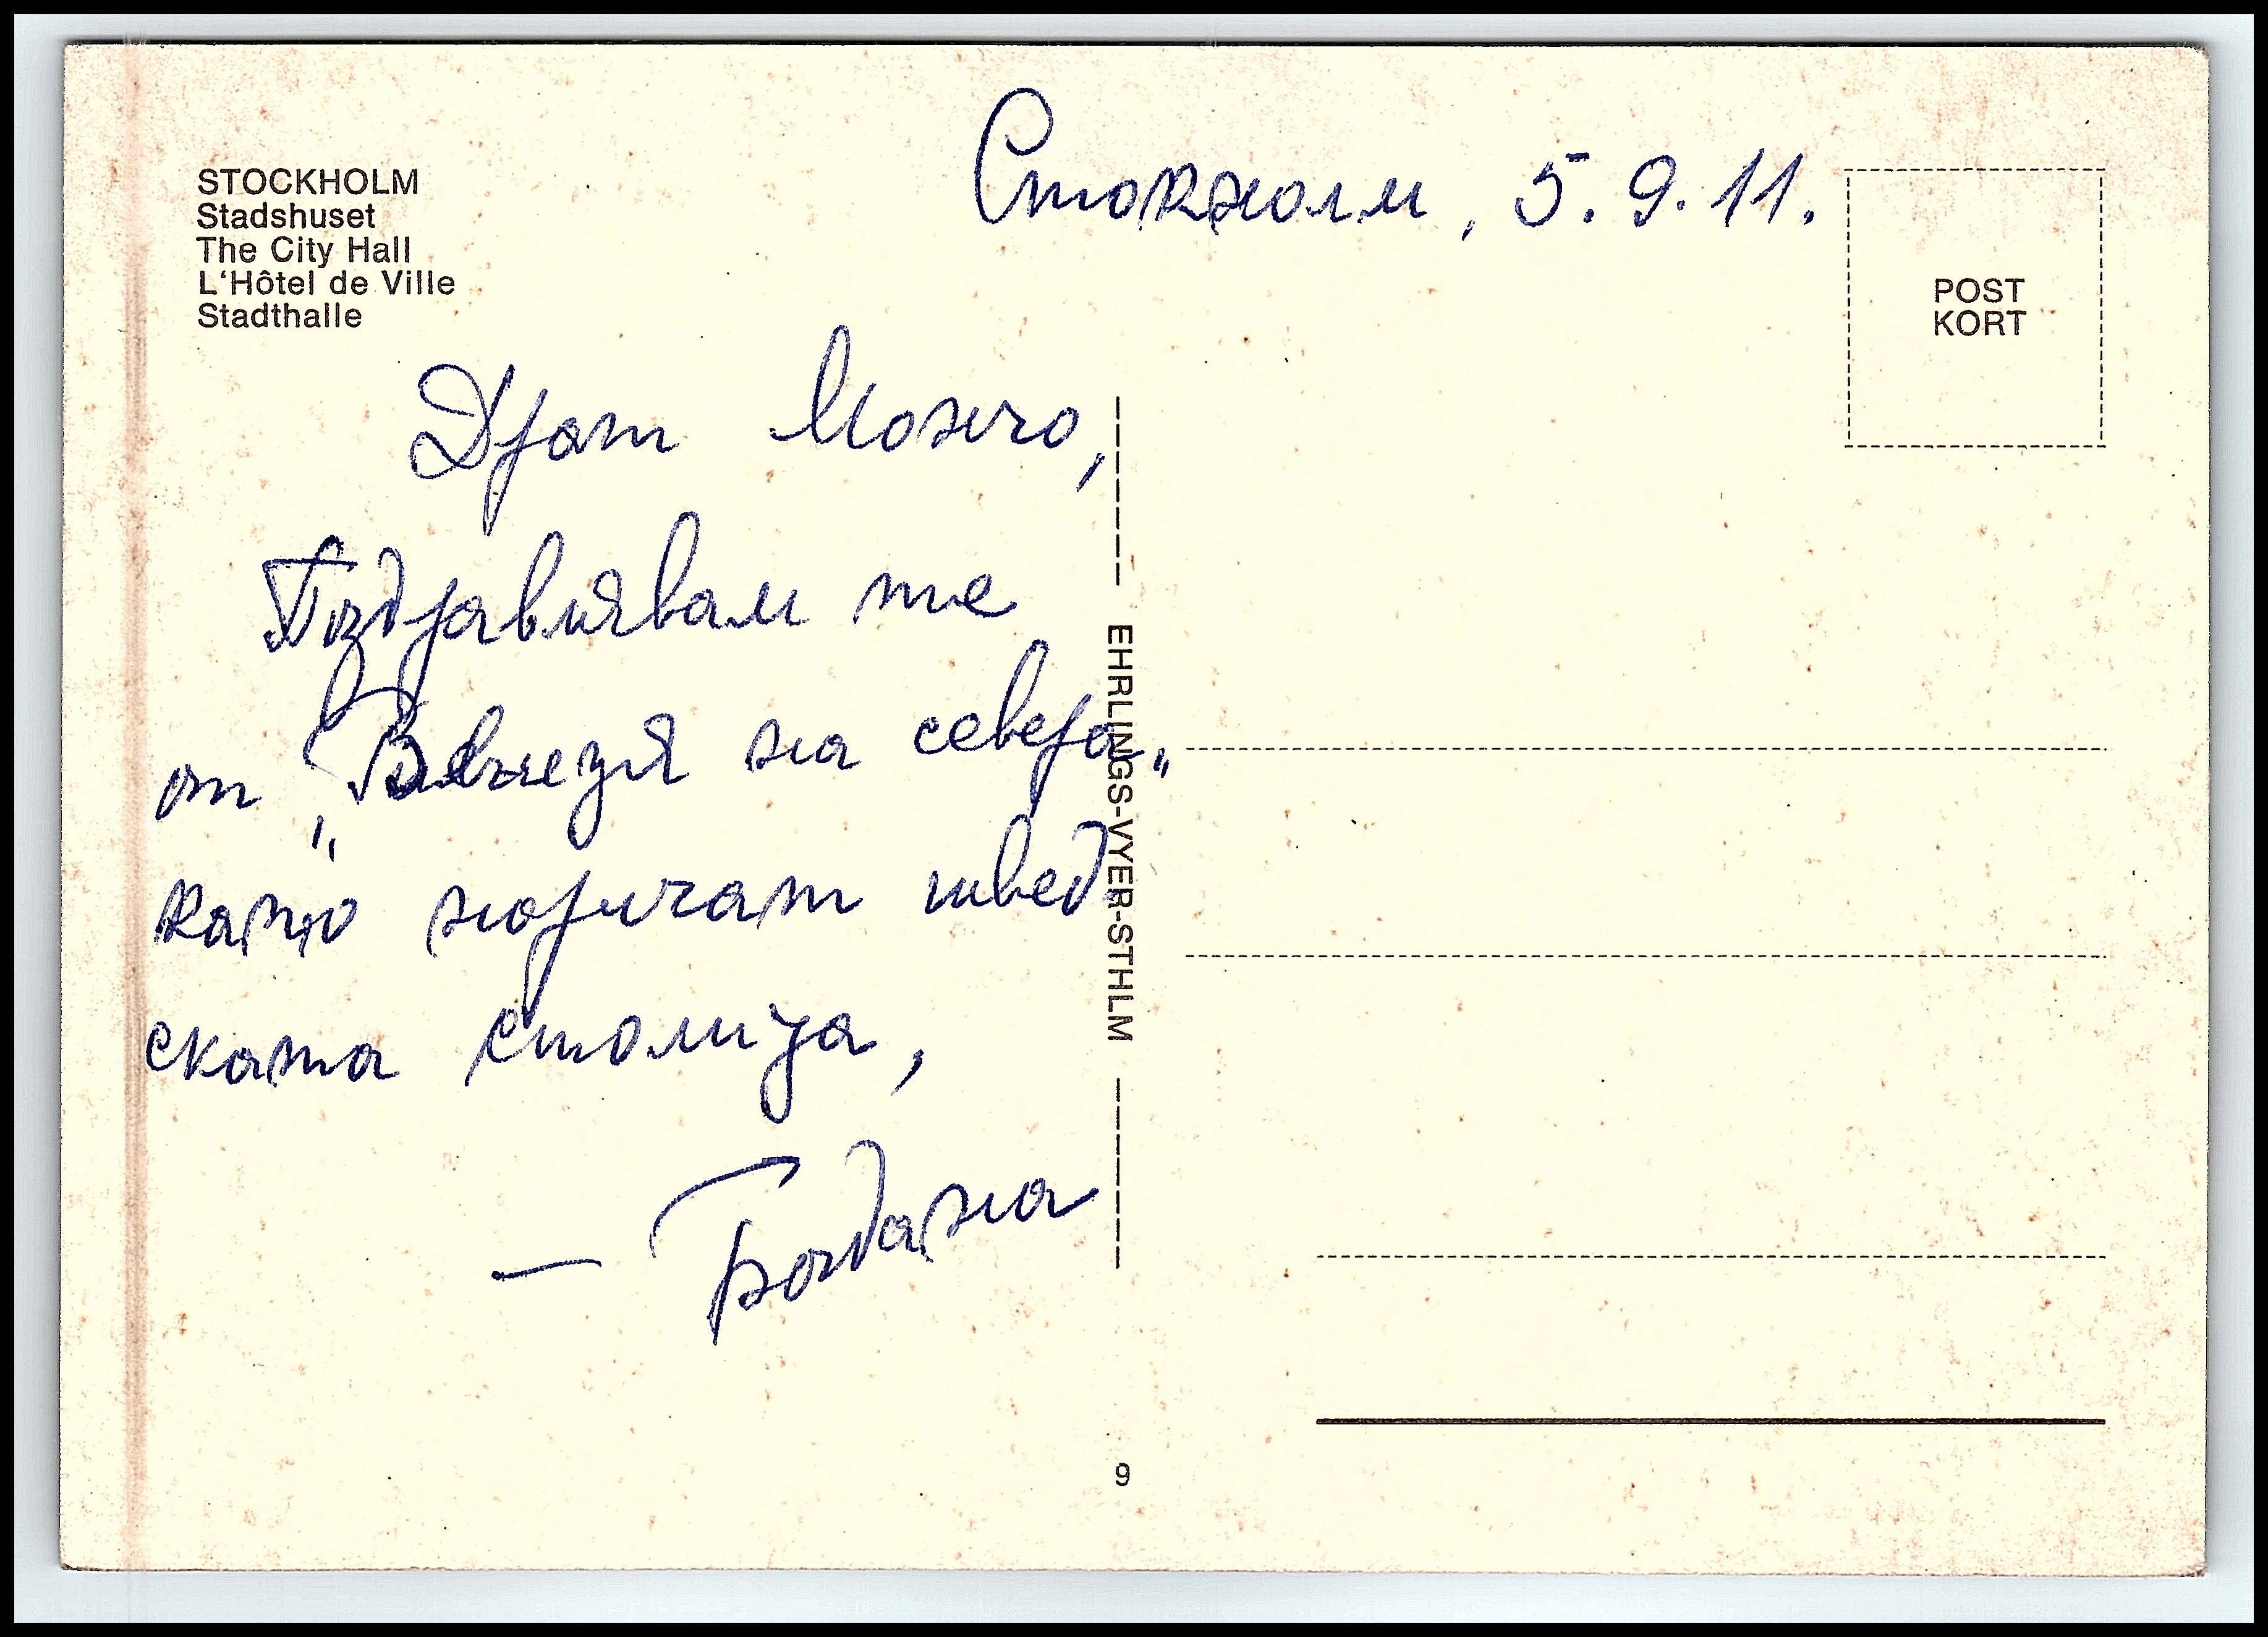 STOCKHOLM
Stadshuset
The City Hall
L'Hôtel de Ville
Stadthalle
Стокхолм, 5.9.11.
POST
KORT
Драт
Поздравлявам те
от „Венезия на севера"
като наричат швед
ската столица,
— Богдана
EHRLINGS-VYER-STHLM
9